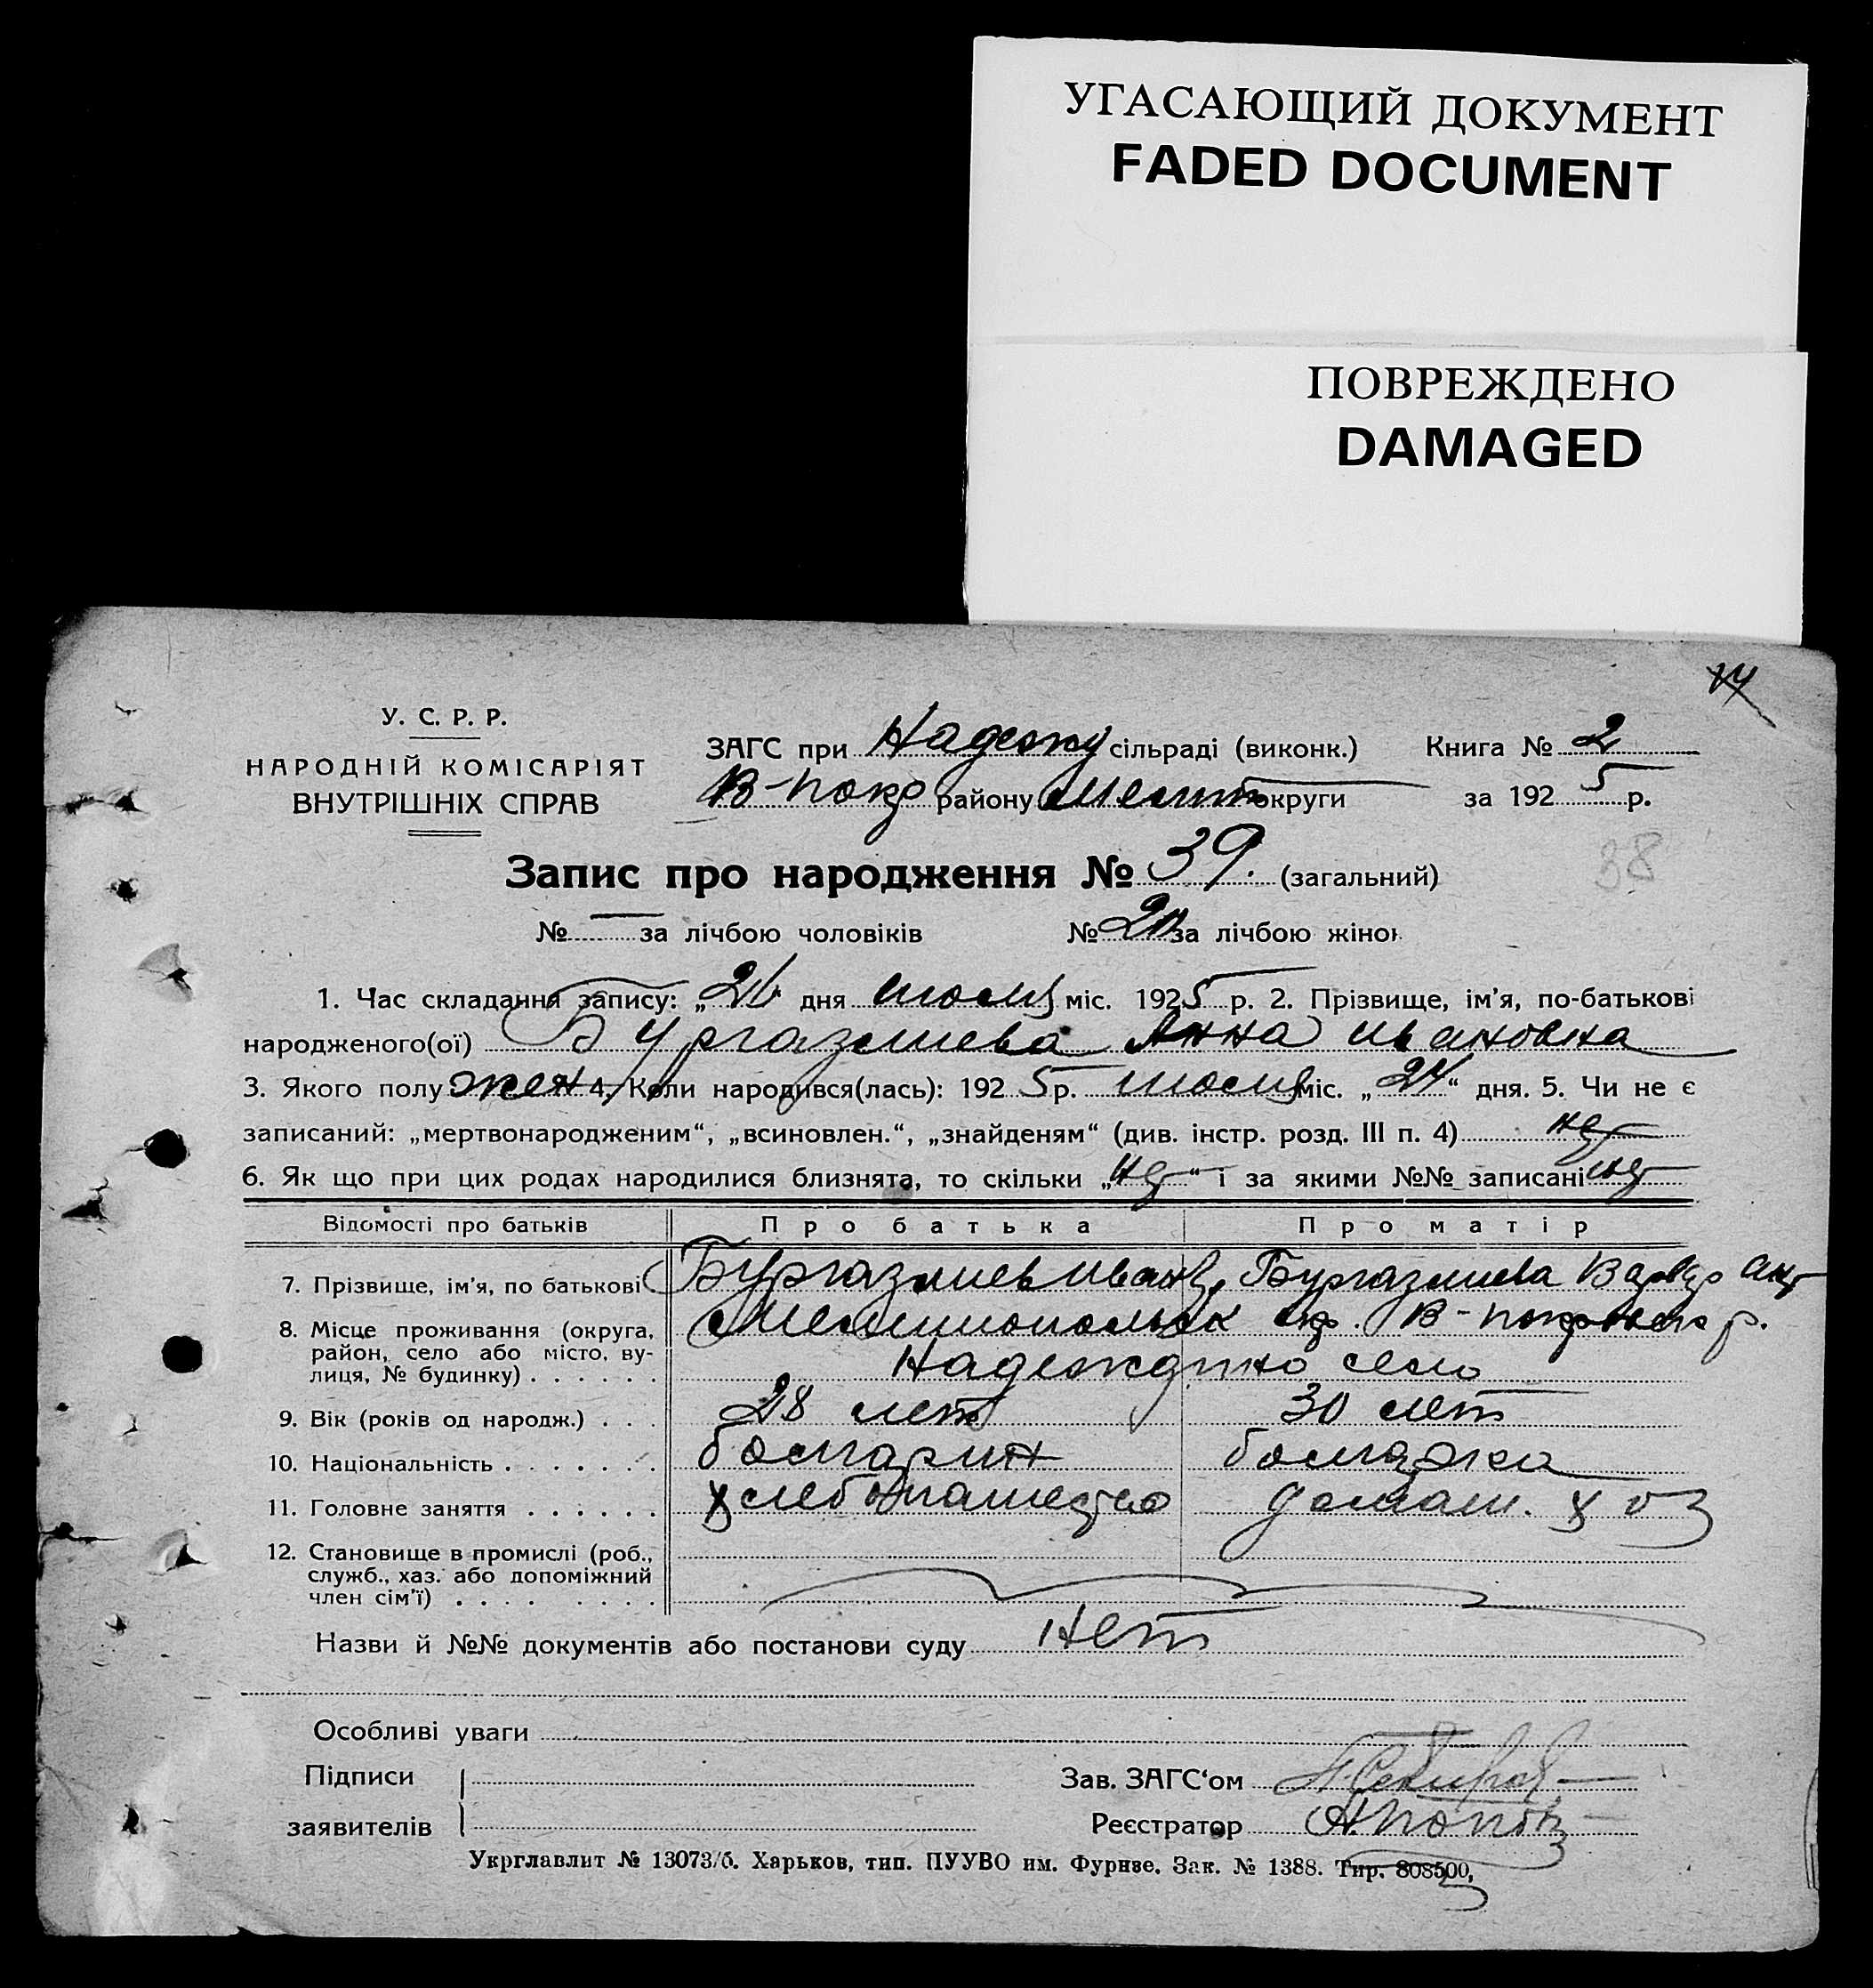 УГАСАЮЩИЙ ДОКУМЕНТ
FADED DOCUMENT
ПОВРЕЖДЕНО
DAMAGED
14
У. С. Р. Р.
НАРОДНІЙ КОМІСАРІЯТ
ВНУТРІШНІХ СПРАВ
ЗАГС при Надежд сільраді (виконк.) Книга № 2
В-Покр району Мелит округи за 1925 р.
Запис про народження № 39. (загальний)
38
№ — за лічбою чоловіків № 20 за лічбою жінок
1. Час складання запису: „26“ дня июля міс. 1925 р. 2. Прізвище, ім'я, по-батькові
народженого(ої) Бургазлиева Анна Ивановна
3. Якого полу жен 4. Коли народився(лась): 1925 р. июля міс. „24“ дня. 5. Чи не є
записаний: „мертвонародженим“, „всиновлен.“, „знайденям“ (див. інстр. розд. III п. 4) нет
6. Як що при цих родах народилися близнята, то скільки „нет“ і за якими №№ записані нет
Відомості про батьків Про батька Про матір
7. Прізвище, ім'я, по батькові Бургазлиев Иван Бургазлиева Варвар
8. Місце проживання (округа, район, село або місто, вулиця, № будинку) . . . . . . Мелитопольск окр. В-Покровск р.
Надеждино село
9. Вік (років од народж.) . . . 28 лет 30 лет
10. Національність . . . . . . . болгарин болгарка
11. Головне заняття . . . . . . хлебопашество домаш. хоз
12. Становище в промислі (роб.,
служб., хаз. або допоміжний
член сім'ї) . . . . . . . .
Назви й №№ документів або постанови суду нет
Особливі уваги
Підписи
заявителів
Зав. ЗАГС‘ом
Реєстратор А. Попов
Укрглавлит № 13073/б. Харьков, тип. ПУУВО им. Фрунзе. Зак. № 1388. Тир. 808500,